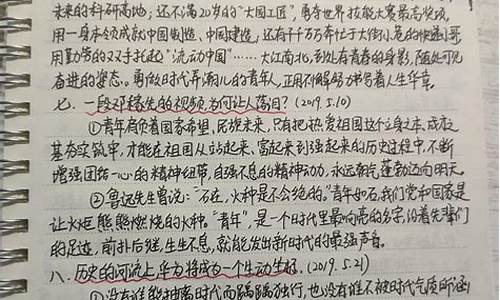 未来的科研高地；还不满20岁的“大国工匠”，勇夺世界技能大赛最高奖项，
用一身本领成就中国制造、中国建造；还有千千万万奔忙于大街小巷的快递小哥
用勤劳的双手托起“流动中国”……大江南北，到处有青春的身影，随处可见
奋进的姿态。勇做时代弄潮儿的青年人，正用不懈努力书写着人生华章。
七、一段邓稼先的视频，为何让人落泪？(2019.5.10)
①青年肩负着国家希望、民族未来，只有把热爱祖国这个立身之本、成才之
基夯实筑牢，才能在祖国从站起来、富起来到强起来的历史过程中，不断
增强团结一心的精神纽带、自强不息的精神动力，永远朝气蓬勃迈向明天。
②鲁迅先生曾说：“石在，火种是不会绝的。”青年如石，我们党和国家是
让火炬熊熊燃烧的火种。“青年”，是一个时代里最响亮的名字，沿着先辈们
的足迹，前扑后继、生生不息，就能发出新时代的最强声音。
八、历史的河流上，华为将成为一个生动坐标。(2019.5.21)
①没有谁能抽离时代而踽踽独行，也没有谁不被时代气质所涵